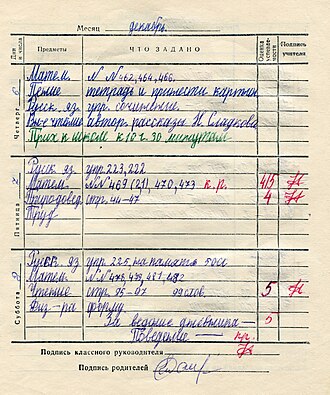 Месяц декабрь
Дни и числа Предметы ЧТО ЗАДАНО Оценка успеваемости Подпись учителя
Четверг 6
Матем. N N 462, 464, 466,
Пение тетрадь и принести картин
Русск яз. упр. сочинение
Вне чтение автор рассказы Н Сладкова
Прих к школе к 10 г. 30 минутам
Пятница
Русск. яз. упр. 223, 222
Матем. N N 469 (2), 470, 473 к. р. 4/5
Природовед. стр. 44-47 4
Труд
Суббота
Русск. яз упр. 225 на память
Матем. N N 481, 482
Чтение стр. 95-97 5
Физ-ра форму
За ведение дневника - 5
Поведение -
Подпись классного руководителя
Подпись родителей